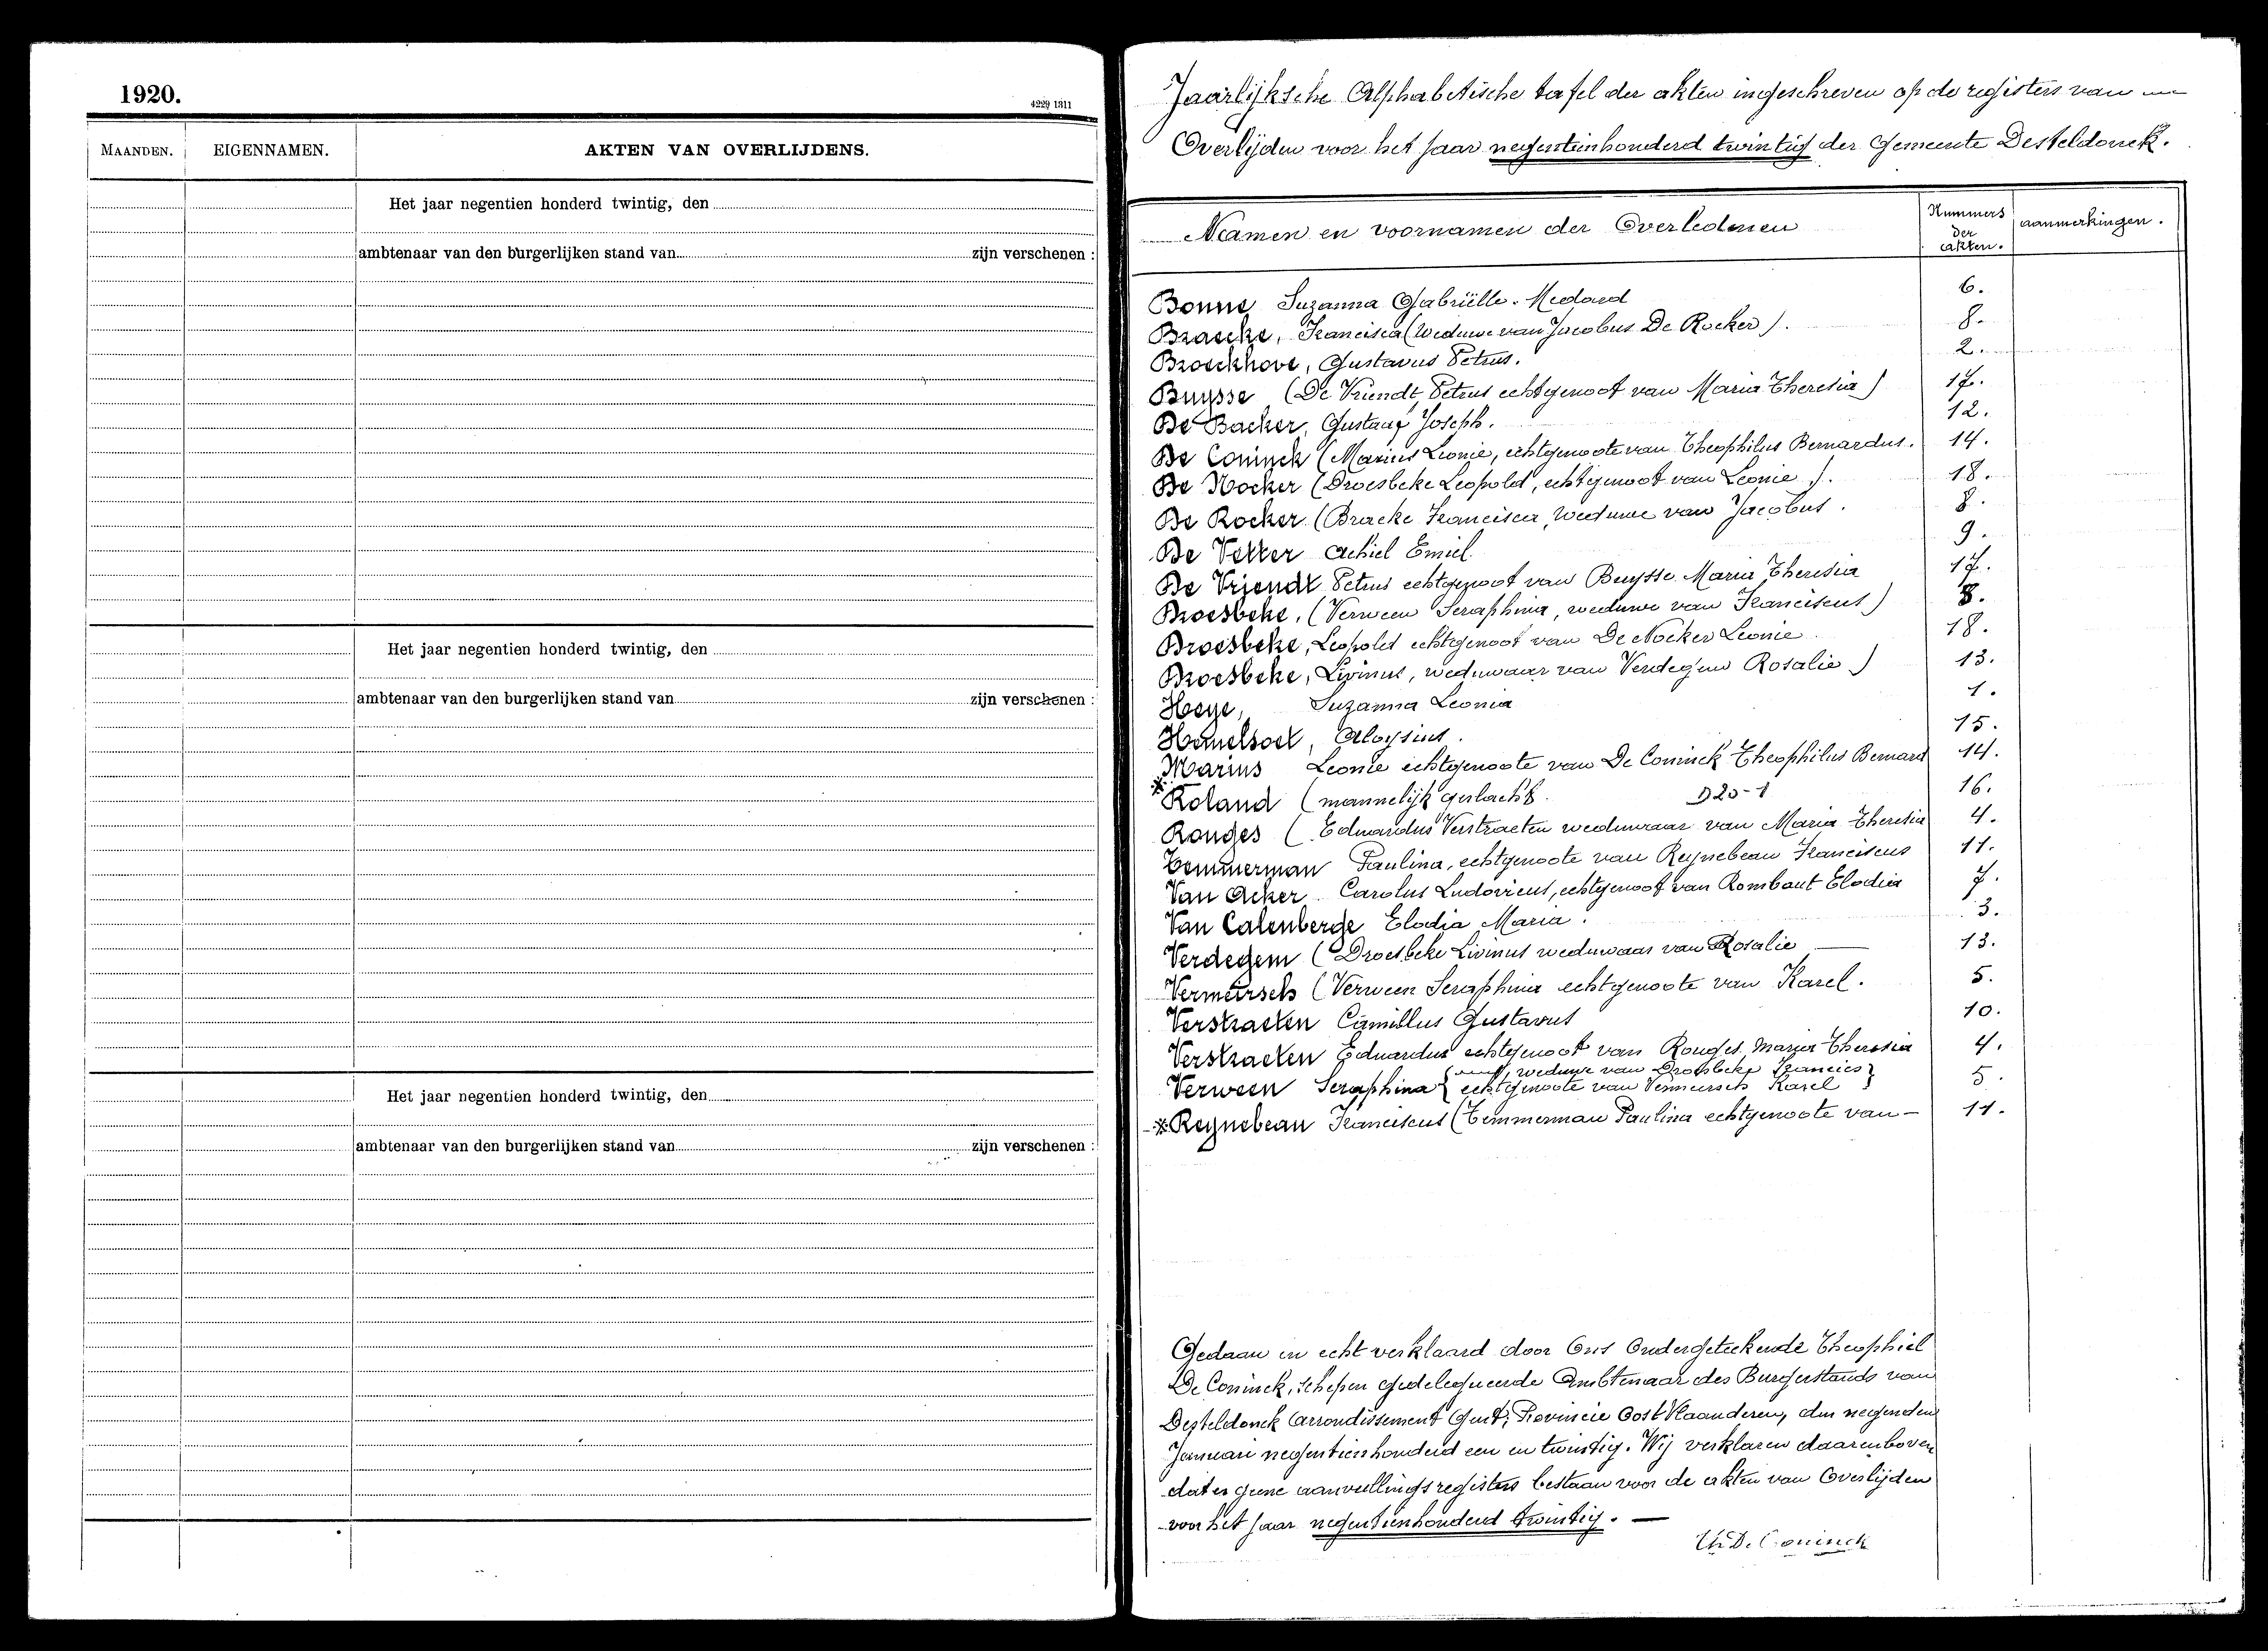 1920.
4229 1311
MAANDEN. EIGENNAMEN. AKTEN VAN OVERLIJDENS.
Het jaar negentien honderd twintig, den
ambtenaar van den burgerlijken stand van zijn verschenen :
Het jaar negentien honderd twintig, den
ambtenaar van den burgerlijken stand van zijn verschenen :
Het jaar negentien honderd twintig, den
ambtenaar van den burgerlijken stand van zijn verschenen :
Jaarlijksche Alphabetische tafel der akten ingeschreven op de registers van
Overlijden voor het jaar negentienhonderd twintig der Gemeente Desteldonck.
Namen en voornamen der Overledenen Nummers der akten. aanmerkingen.
Bonne Suzanna Gabriëlle. Medard 6.
Braecke, Francisca (Weduwe van Jacobus De Rocker). 8.
Broeckhove, Gustavus Petrus. 2.
Buysse (De Vriendt, Petrus echtgenoot van Maria Theresia) 17.
De Backer, Gustaaf Joseph. 12.
De Coninck (Marius Leonie, echtgenoote van Theophilus Bernardus. 14.
De Nocker (Droesbeke Leopold, echtgenoot van Leonie). 18.
De Rocker (Bracke Francisca, Weduwe van Jacobus. 8.
De Vetter Achiel Emiel. 9.
De Vriendt Petrus echtgenoot van Buysse Maria Theresia 17.
Droesbeke, (Verween Seraphina, weduwe van Franciscus)
Droesbeke, Leopold echtgenoot van De Nocker Leonie 18.
Droesbeke, Livinus, weduwaar van Verdegem Rosalie) 13.
Heye, Suzanna Leonia 1.
Hemelsoet, Aloysius. 15.
Marius Leonie echtgenoote van De Coninck Theophilus Bernard 14.
* Roland (mannelijk geslacht. D20-1 16.
Ronges (Eduardus Verstraeten weduwaar van Maria Theresia 4.
Temmerman Paulina, echtgenoote van Reynebeau Franciscus 11.
Van Acker Carolus Ludovicus, echtgenoot van Rombaut Elodia 7.
Van Calenberge Elodia Maria. 3.
Verdegem (Droesbeke Livinus weduwaar van Rosalie 13.
Vermeirsch (Verween Seraphina echtgenoote van Karel. 5.
Verstraeten Camillus Gustavus 10.
Verstraeten Eduardus echtgenoot van Ronges Maria Theresia 4.
weduwe van Droesbeke Francies
Verween Seraphina echtgenoote van Vermeirsch Karel 5.
* Reynebeau Franciscus (Temmerman Paulina echtgenoote van - 11.
Gedaan en echt verklaard door Ons Ondergeteekende Theophiel
De Coninck, Schepen gedelegueerde Ambtenaar des Burgerstands van
Desteldonck Arrondissement Gent, Provincie Oost Vlaanderen, den negenden
Januari negentienhonderd een en twintig. Wij verklaren daarenboven
dat er geene aanvullingsregisters bestaan voor de akten van Overlijden
voor het jaar negentienhonderd twintig. —
Th. De Coninck